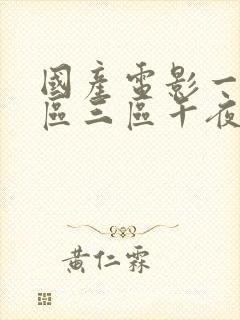 國產電影一
區三區午夜
黃仁霖